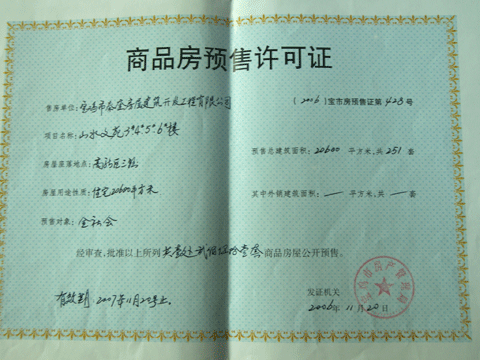 商品房预售许可证
售房单位：宝鸡市秦金房屋建筑开发工程有限公司
(2006)宝市房预售证第428号
项目名称：山水文苑3#4#5#6#楼
预售总建筑面积：20600 平方米，共 251 套
房屋座落地点：高新区
房屋用途性质：住宅20600平方米
其中外销建筑面积：— 平方米，共 — 套
预售对象：全社会
经审查，批准以上所列 商品房屋公开预售。
发证机关
有效期 2007年11月20号止。
2006年11月20日